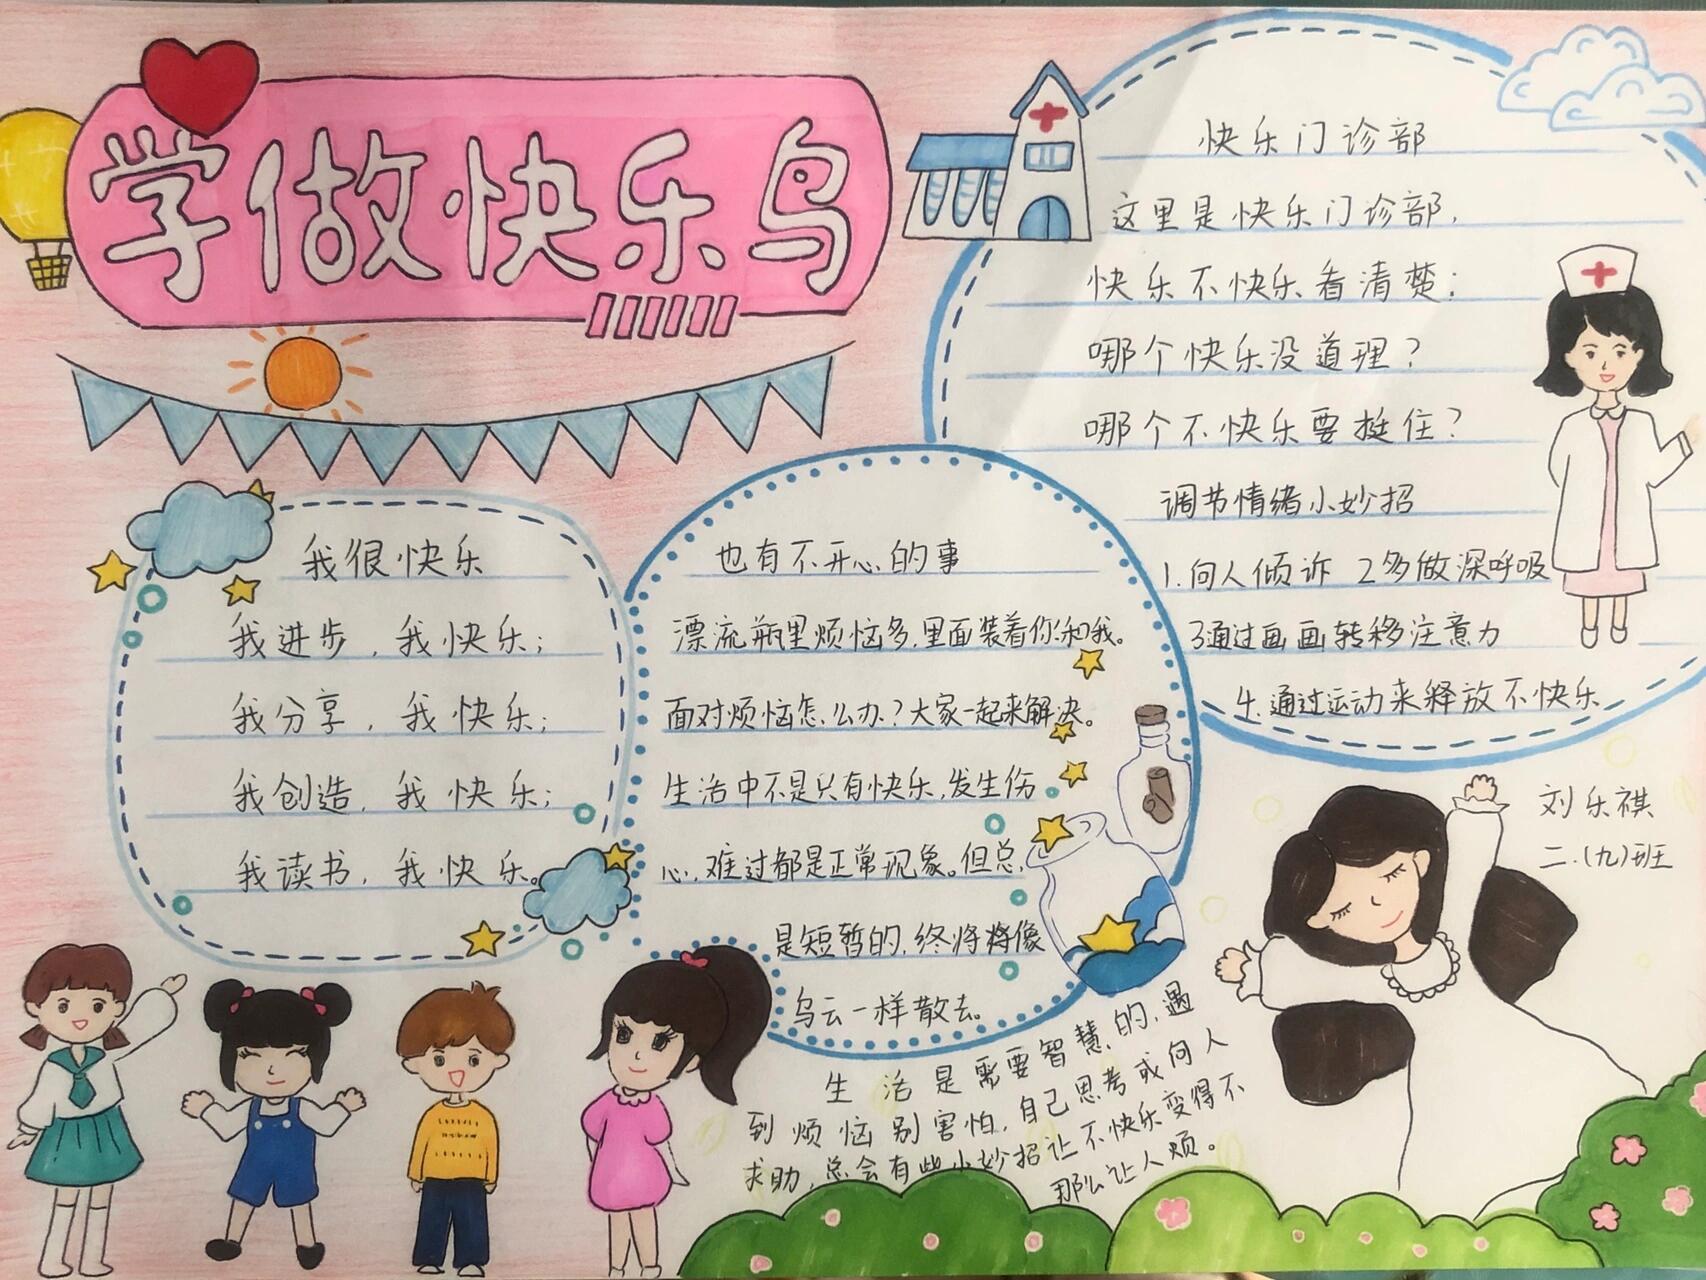 学做快乐鸟
快乐门诊部
这里是快乐门诊部,
快乐不快乐看清楚;
哪个快乐没道理?
哪个不快乐要挺住?
调节情绪小妙招
1.向人倾诉 2多做深呼吸
3通过画画转移注意力
4.通过运动来释放不快乐
我很快乐
我进步,我快乐;
我分享,我快乐;
我创造,我快乐;
我读书,我快乐。
也有不开心的事
漂流瓶里烦恼多,里面装着你和我。
面对烦恼怎么办?大家一起来解决。
生活中不是只有快乐,发生伤
心,难过都是正常现象。但总,
是短暂的,终将将像
乌云一样散去。
生活是需要智慧的,遇
到烦恼别害怕,自己思考或向人
求助,总会有些小妙招让不快乐变得不
那么让人烦。
刘乐祺
二.(九)班